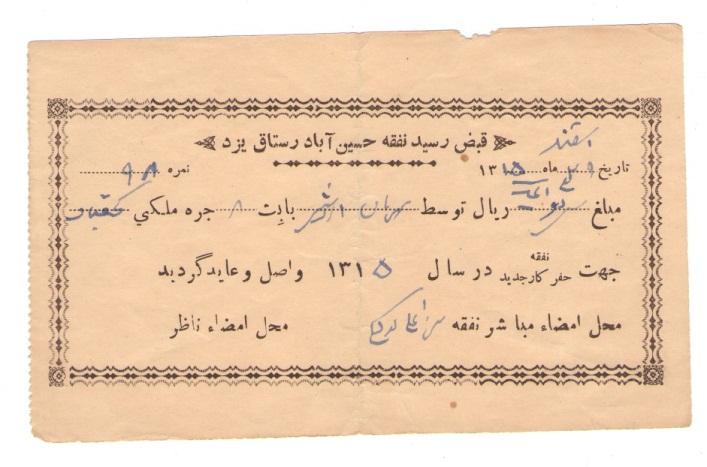 قبض رسید نفقه حسین آباد رستاق یزد
اسفند
تاریخ ماه ۱۳۱۵ نمره ۹۸
مبلغ ریال توسط بابت ۸ جره ملکي
جهت نفقه حفر کار جدید در سال ۱۳۱۵ واصل و عاید گردید
محل امضاء مباشر نفقه محل امضاء ناظر